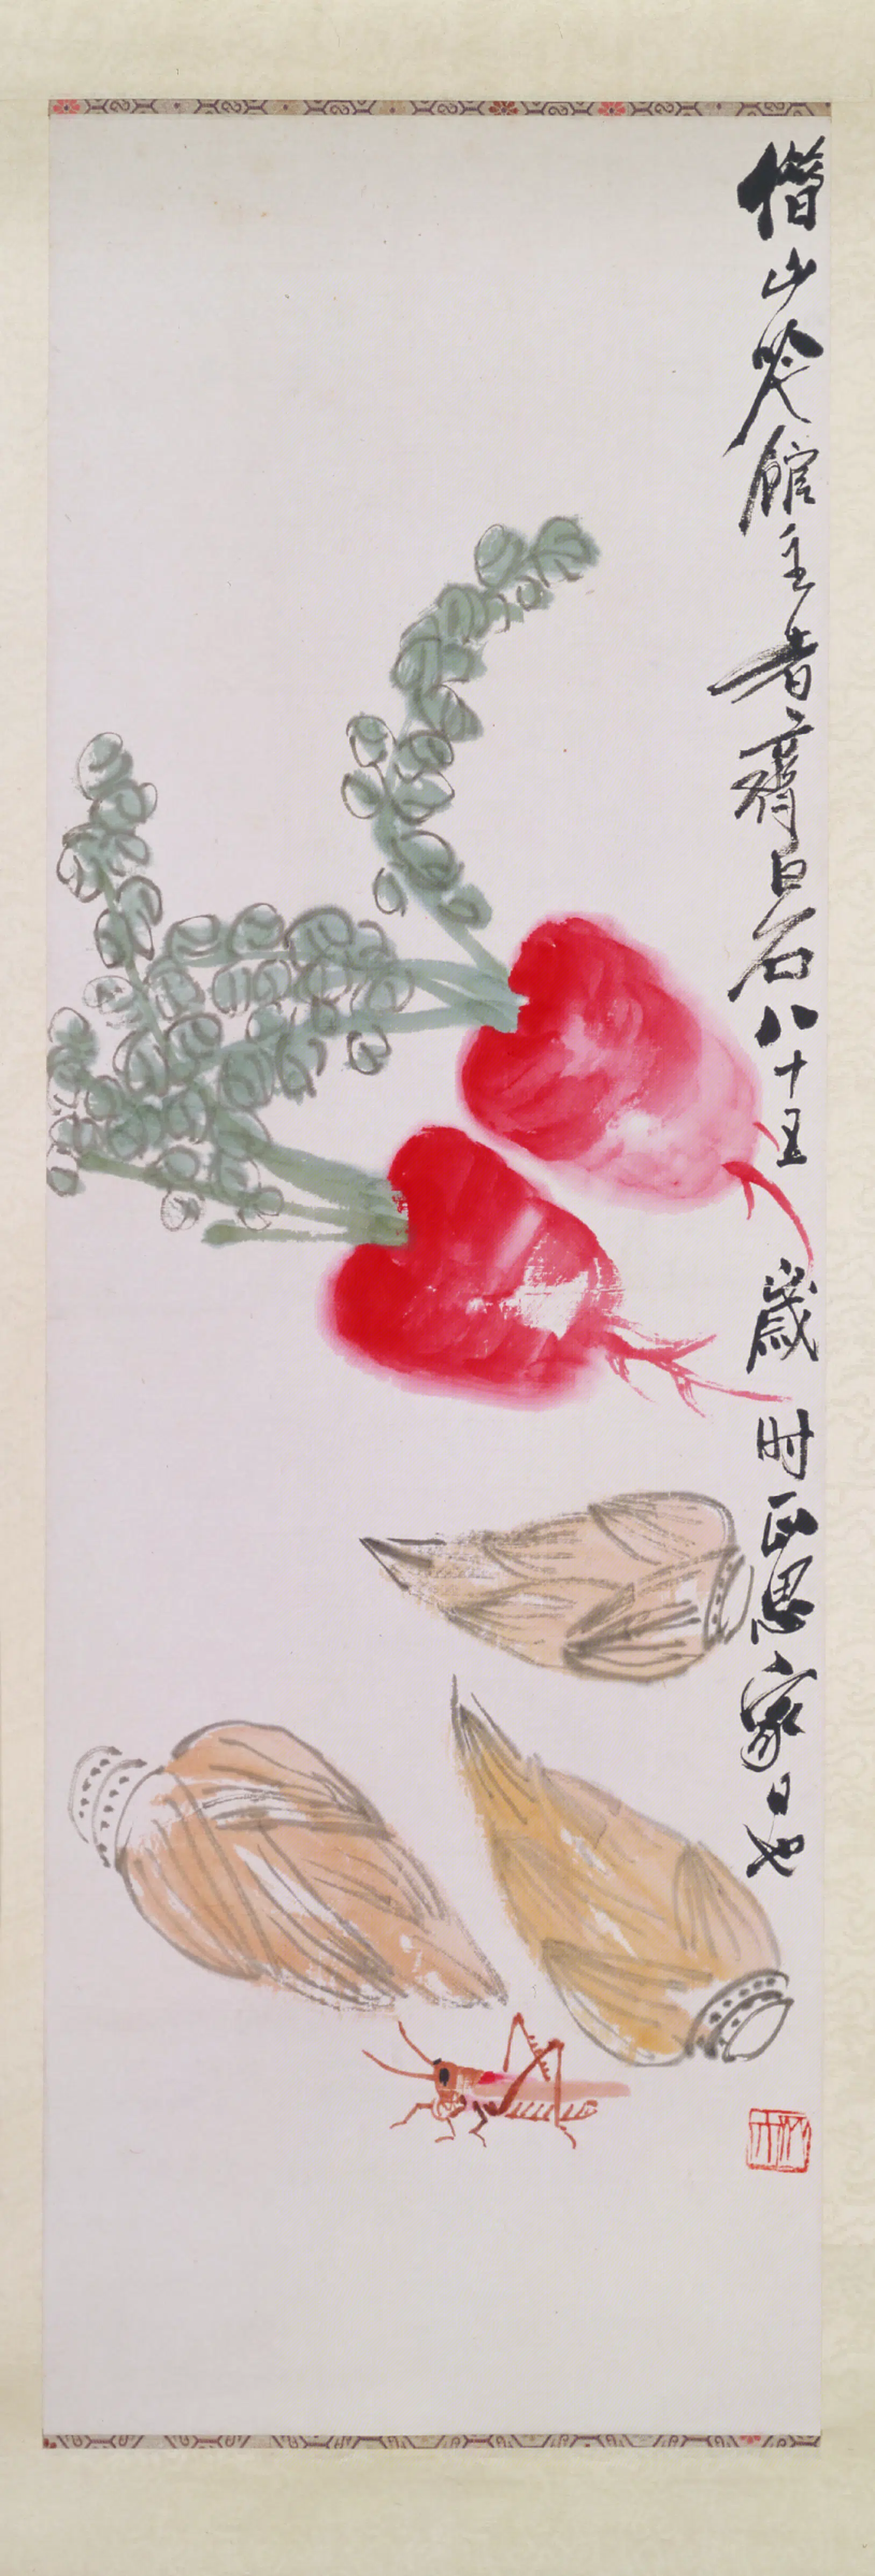 借山吟館主者齊白石八十五歲时正思家日也